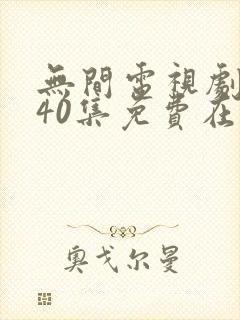 無間電視劇
40集免費在
奧戈尔曼